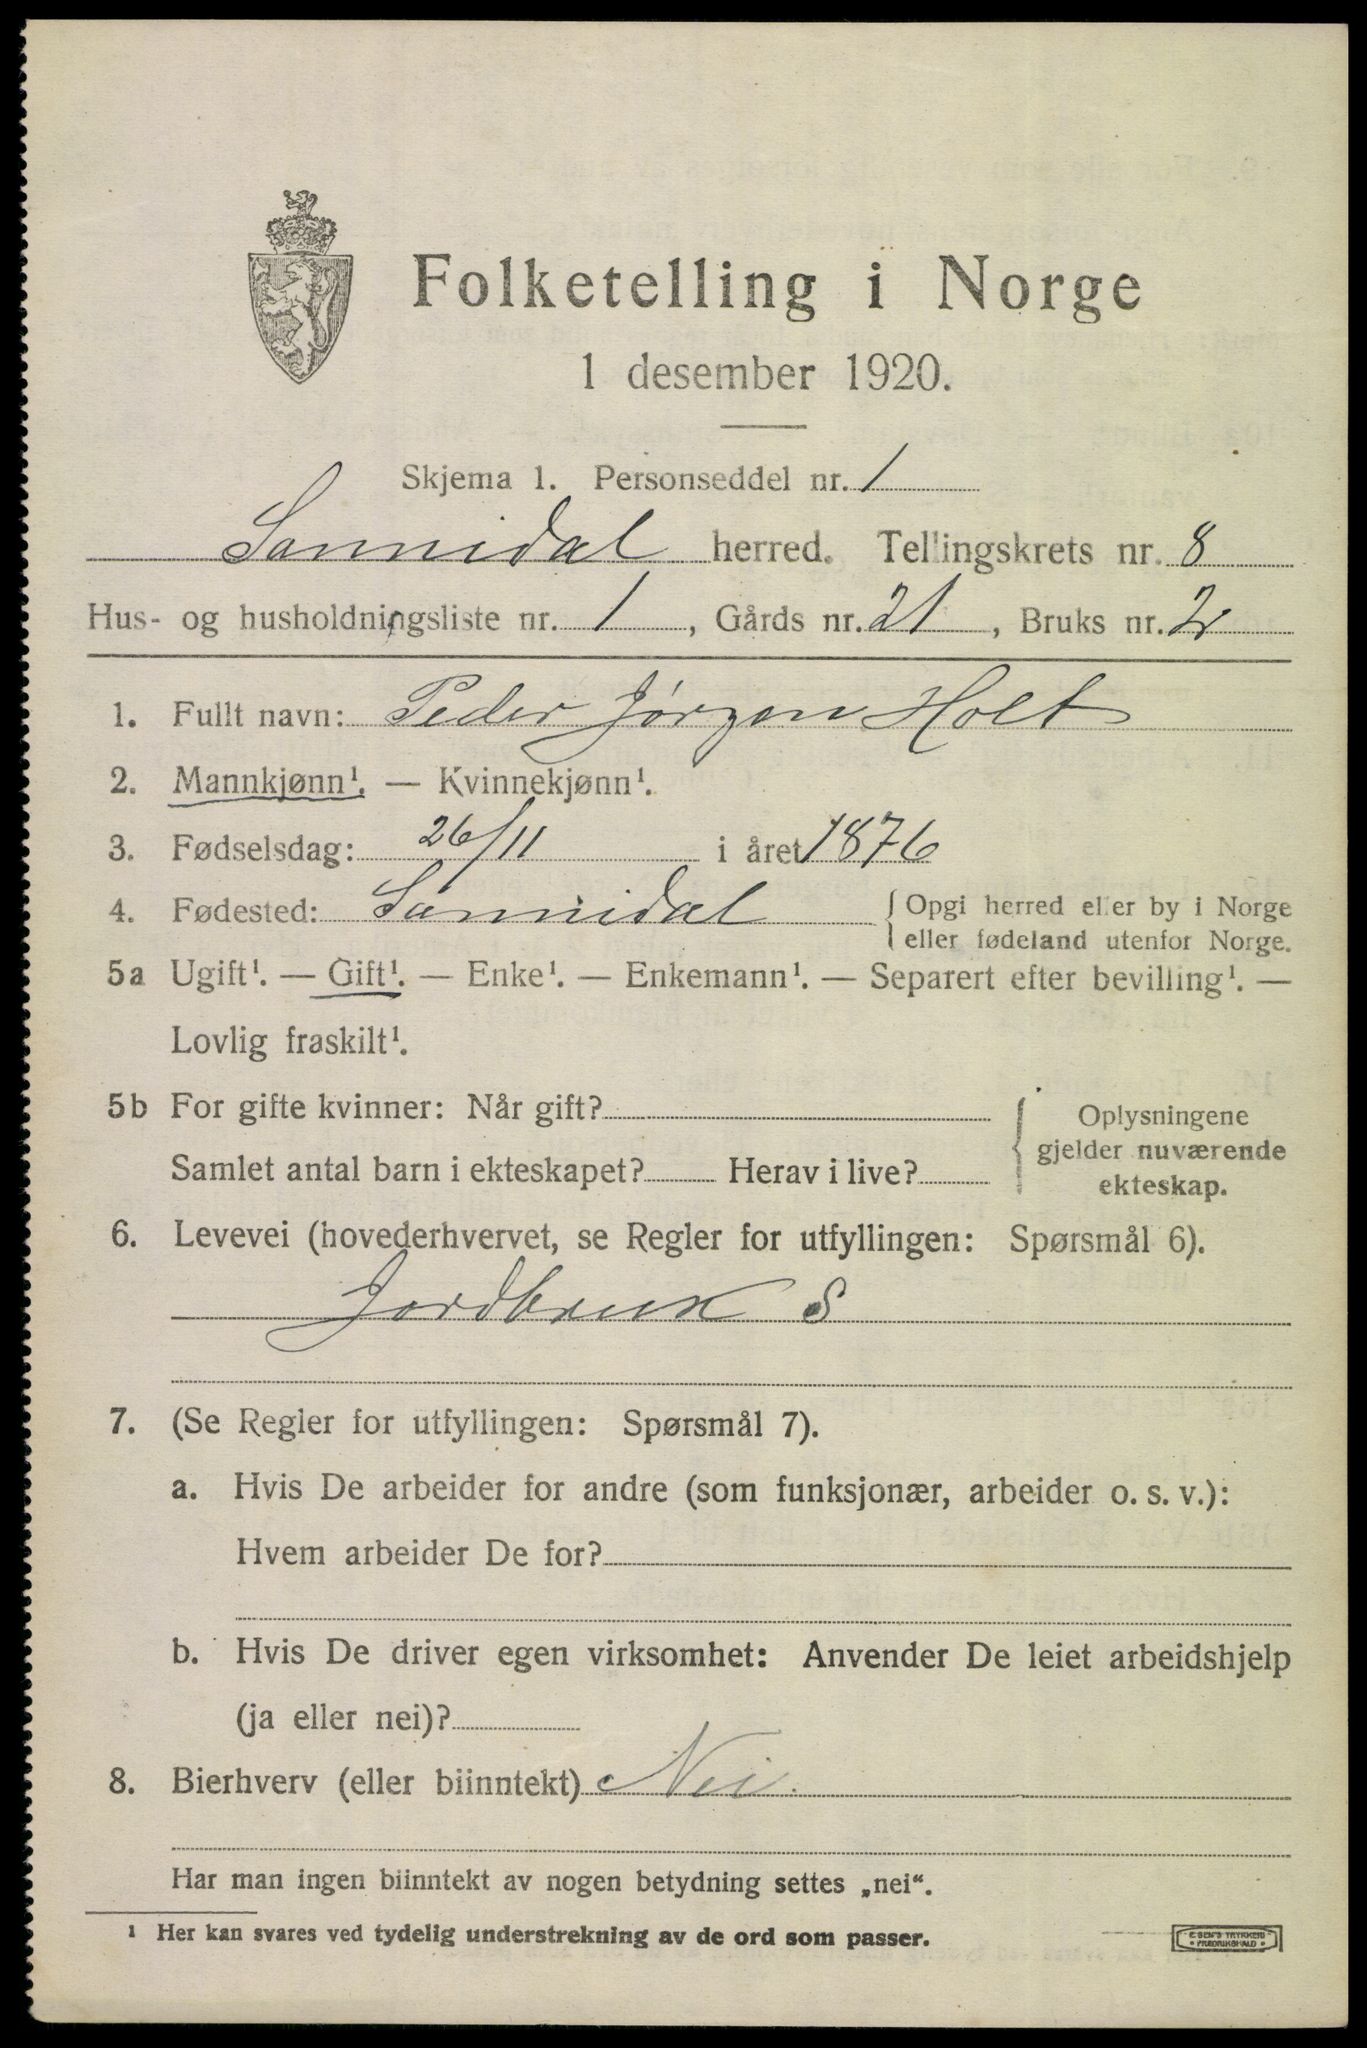 Folketelling i Norge
1 desember 1920.
Skjema 1. Personseddel nr. 1
Sannidal herred. Tellingskrets nr. 8
Hus- og husholdningsliste nr. 1, Gårds nr. 21, Bruks nr. 2
1. Fullt navn: Peder Jørgen Holt
2. Mannkjønn¹. — Kvinnekjønn¹.
3. Fødselsdag: 26/11 i året 1876
4. Fødested: Sannidal { Opgi herred eller by i Norge
eller fødeland utenfor Norge.
5a Ugift¹. — Gift¹. — Enke¹. — Enkemann¹. — Separert efter bevilling¹. —
Lovlig fraskilt¹.
5b For gifte kvinner: Når gift?
Samlet antal barn i ekteskapet? Herav i live?
{ Oplysningene
gjelder nuværende
ekteskap.
6. Levevei (hovederhvervet, se Regler for utfyllingen: Spørsmål 6).
Jordbruk S
7. (Se Regler for utfyllingen: Spørsmål 7).
a. Hvis De arbeider for andre (som funksjonær, arbeider o. s. v.):
Hvem arbeider De for?
b. Hvis De driver egen virksomhet: Anvender De leiet arbeidshjelp
(ja eller nei)?
8. Bierhverv (eller biinntekt) Nei.
Har man ingen biinntekt av nogen betydning settes „nei“.
¹ Her kan svares ved tydelig understrekning av de ord som passer.
E. SEM'S TRYKKERI
• FREDRIKSHALD •